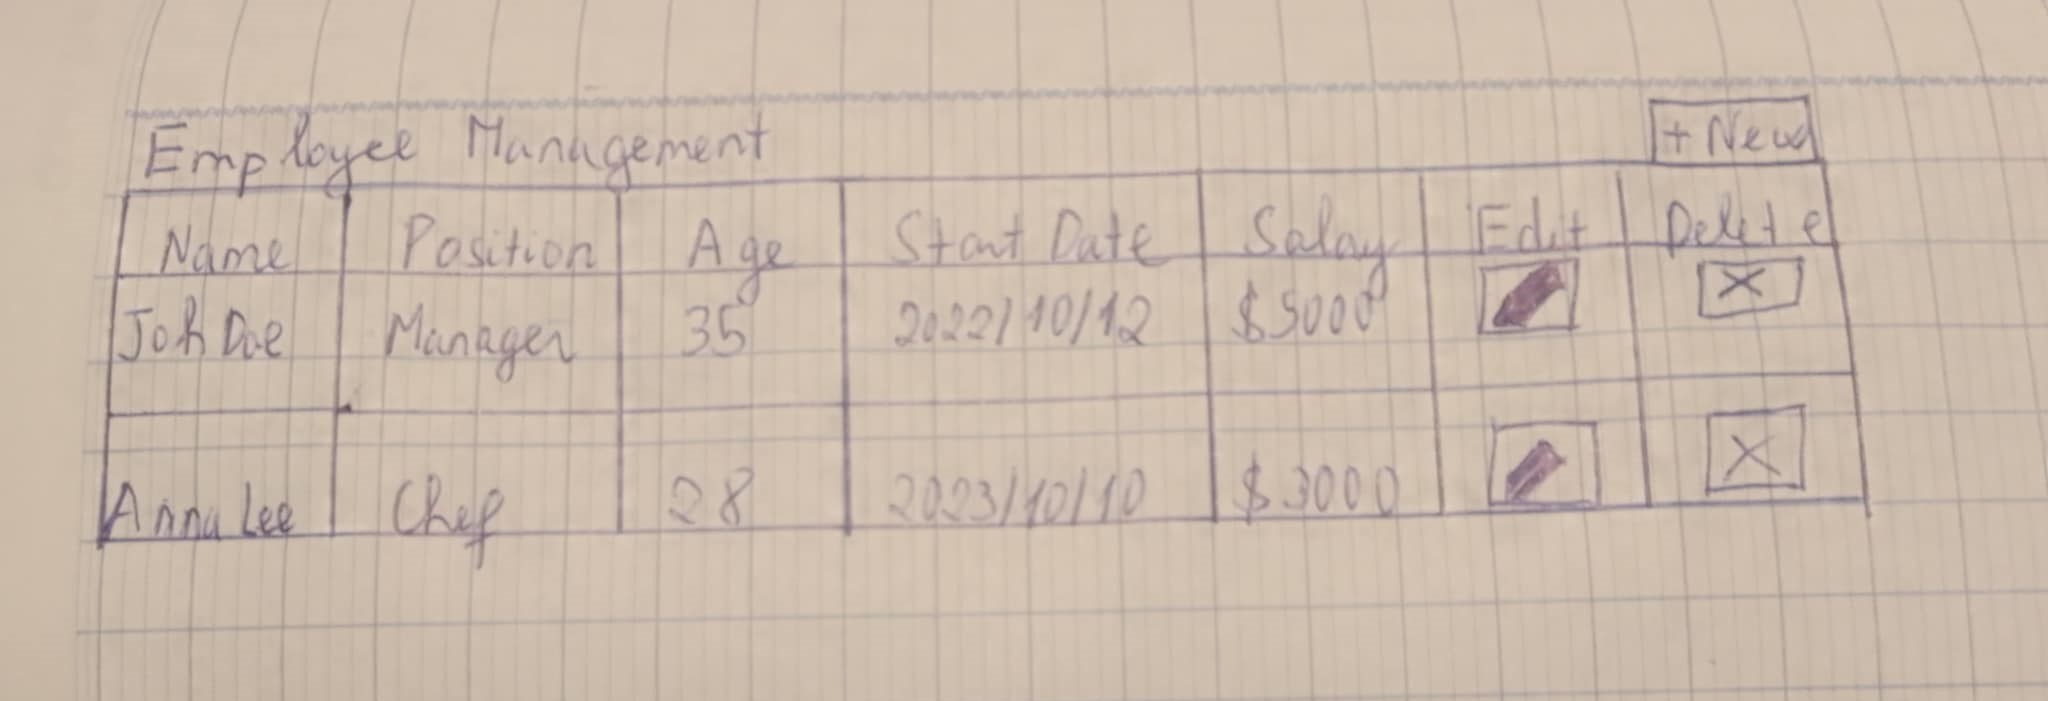 Employee Management + New
Name Position Age Start Date Salay Edit Delete
Joh Doe Manager 35 2022/10/12 $5000
Anna Lee Chef 28 2023/10/10 $3000